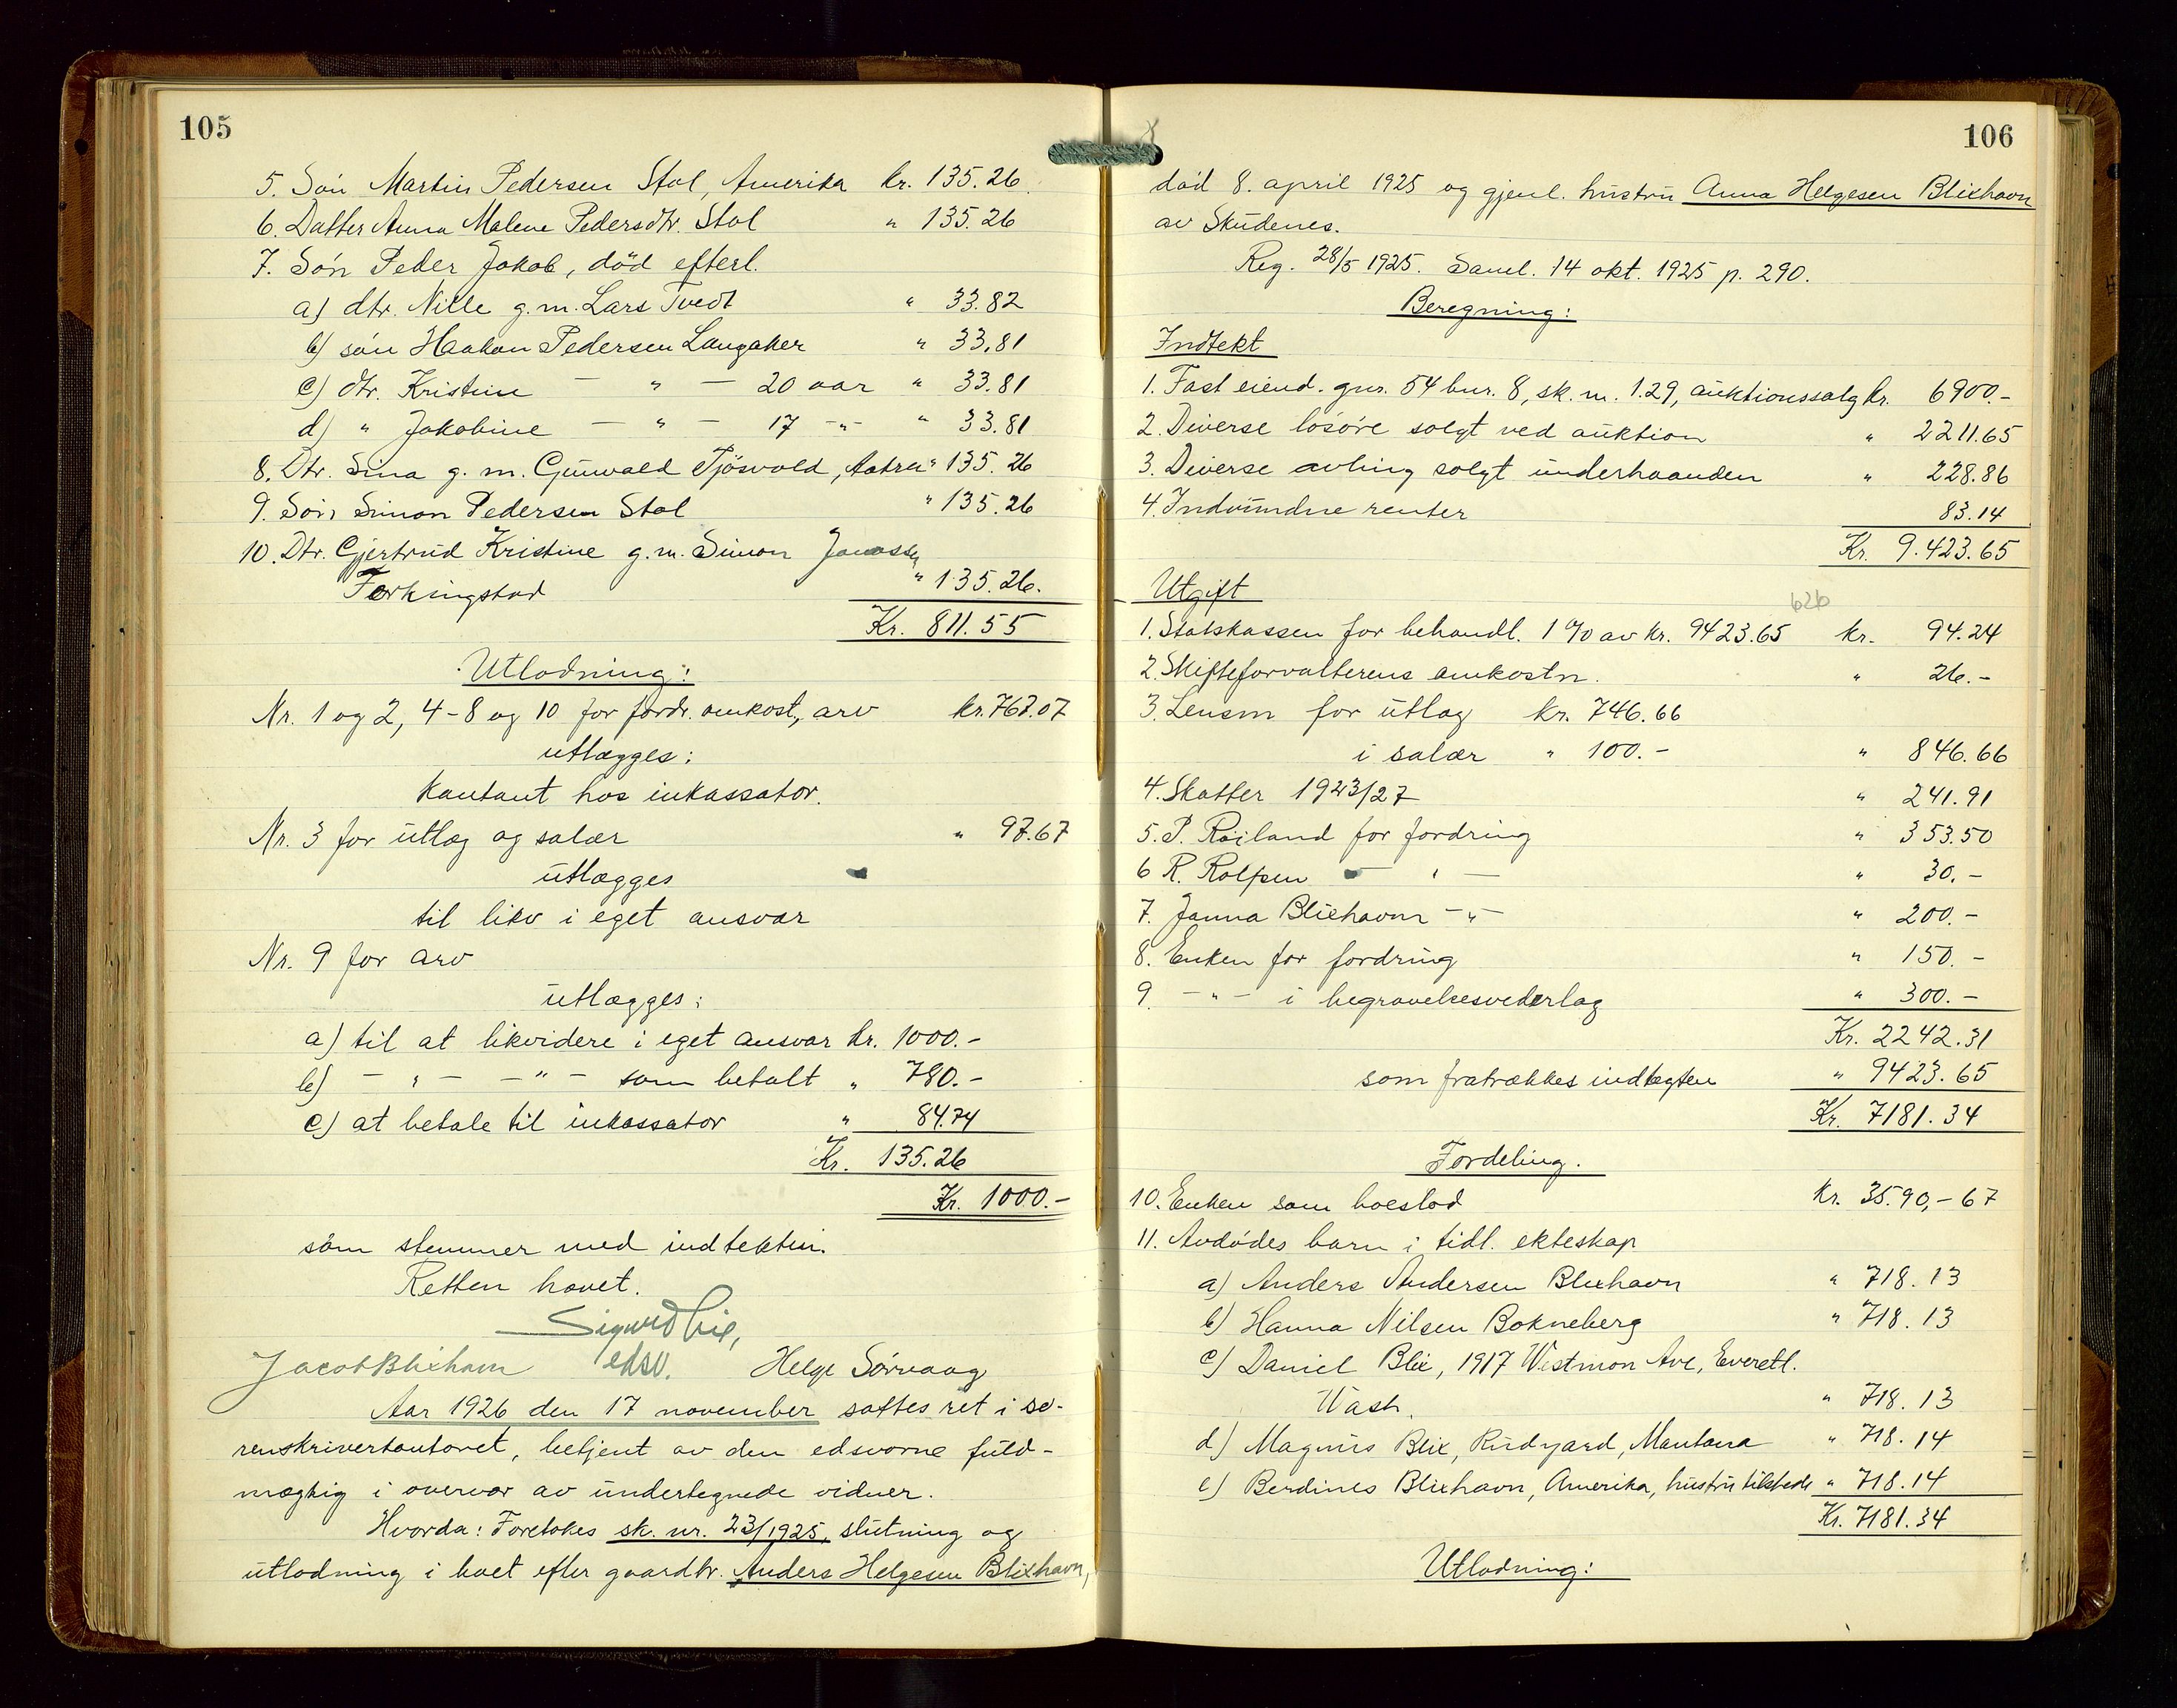 105
5. Søn Martin Pedersen Stol, Amerika kr. 135.26.
6. Datter Anna Malene Pedersdtr. Stol " 135.26
7. Søn Peder Jakob, død efterl.
a) dtr. Nille g.m. Lars Tvedt " 33.82
b) søn Haakon Pedersen Langaker " 33.81
c) dtr. Kristine — " — 20 aar " 33.81
d) " Jakobine — " — 17 -"- " 33.81
8. Dtr. Sina g. m. Gunvald Tjøsvold, Aakra " 135.26
9. Søn Simon Pedersen Stol " 135.26
10. Dtr. Gjertrud Kristine g.m. Simon Jonassen
Ferkingstad " 135.26.
Kr. 811.55
Utlodning:
Nr. 1 og 2, 4-8 og 10 for fordr. omkost., arv kr. 767.07
utlægges:
kontant hos inkassator.
Nr. 3 for utlæg og salær " 97.67
utlægges
til likv i eget ansvar
Nr. 9 for arv
utlægges:
a) til at likvidere i eget ansvar kr. 1000.-
b) — " — — " — som betalt " 780.-
c) at betale til inkassator " 84.74
Kr. 135.26
Kr. 1000.-
som stemmer med indtekten.
Retten hævet.
Sigurd Lie,
Jacob Blixhavn edsv. Helge Sørvaag
Aar 1926 den 17 november sattes ret i so-
renskriverkontoret, betjent av den edsvorne fuld-
mægtig i overvær av undertegnede vidner.
Hvorda: Foretokes sk. nr. 23/1925, slutning og
utlodning i boet efter gaardbr. Anders Helgesen Blixhavn,
106
død 8. april 1925 og gjenl. hustru Anna Helgesen Blixhavn
av Skudenes.
Reg. 28/5 1925. Saml. 14 okt. 1925 p. 290.
Beregning:
Indtekt
1. Fast eiend. gnr. 54 bnr. 8, sk. m. 1.29, auktionssalg kr. 6900.-
2. Diverse løsøre solgt ved auktion " 2211.65
3. Diverse avling solgt underhaanden " 228.86
4. Indvundne renter 83.14
Kr. 9.423.65
Utgift
626
1. Statskassen for behandl. 1 % av kr. 9423.65 kr. 94.24
2. Skifteforvalterens omkostn. " 26.-
3. Lensm for utlæg kr. 746.66
i salær " 100.- " 846.66
4. Skatter 1923/27 " 241.91
5. P. Røiland for fordring " 353.50
6 R. Rolfsen — " — " 30.-
7. Janna Blixhavn -"- " 200.-
8. Enken for fordring " 150.-
9. -"- i begravelsesvederlag " 300.-
Kr. 2242.31
som fratrækkes indtægten " 9423.65
Kr. 7181.34
Fordeling.
10. Enken som boeslod kr. 35.90,-67
11. Avdødes barn i tidl. ekteskap
a) Anders Andersen Blixhavn " 718.13
b) Hanna Nilsen Bokneberg " 718.13
c) Daniel Blix, 1917 Westmon Ave, Everett.
Wash. " 718.13
d) Magnus Blix, Rudyard, Mantana " 718.14
e) Berdines Blixhavn, Amerika, hustru tilstede " 718.14
Kr. 7181.34
Utlodning: